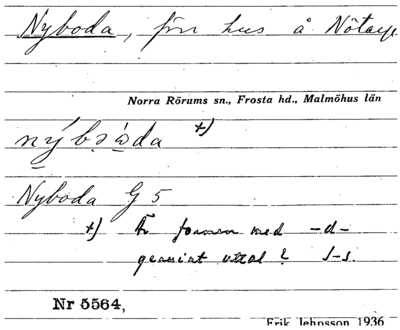 Nyboda, förr hus å Nötaye
Norra Rörums sn., Frosta hd., Malmöhus län
nýbə ẁda *)
Nyboda G 5
*) Är formen med -d-
genuint uttal? J-s.
Nr 5564,
Erik Jehpsson 1936